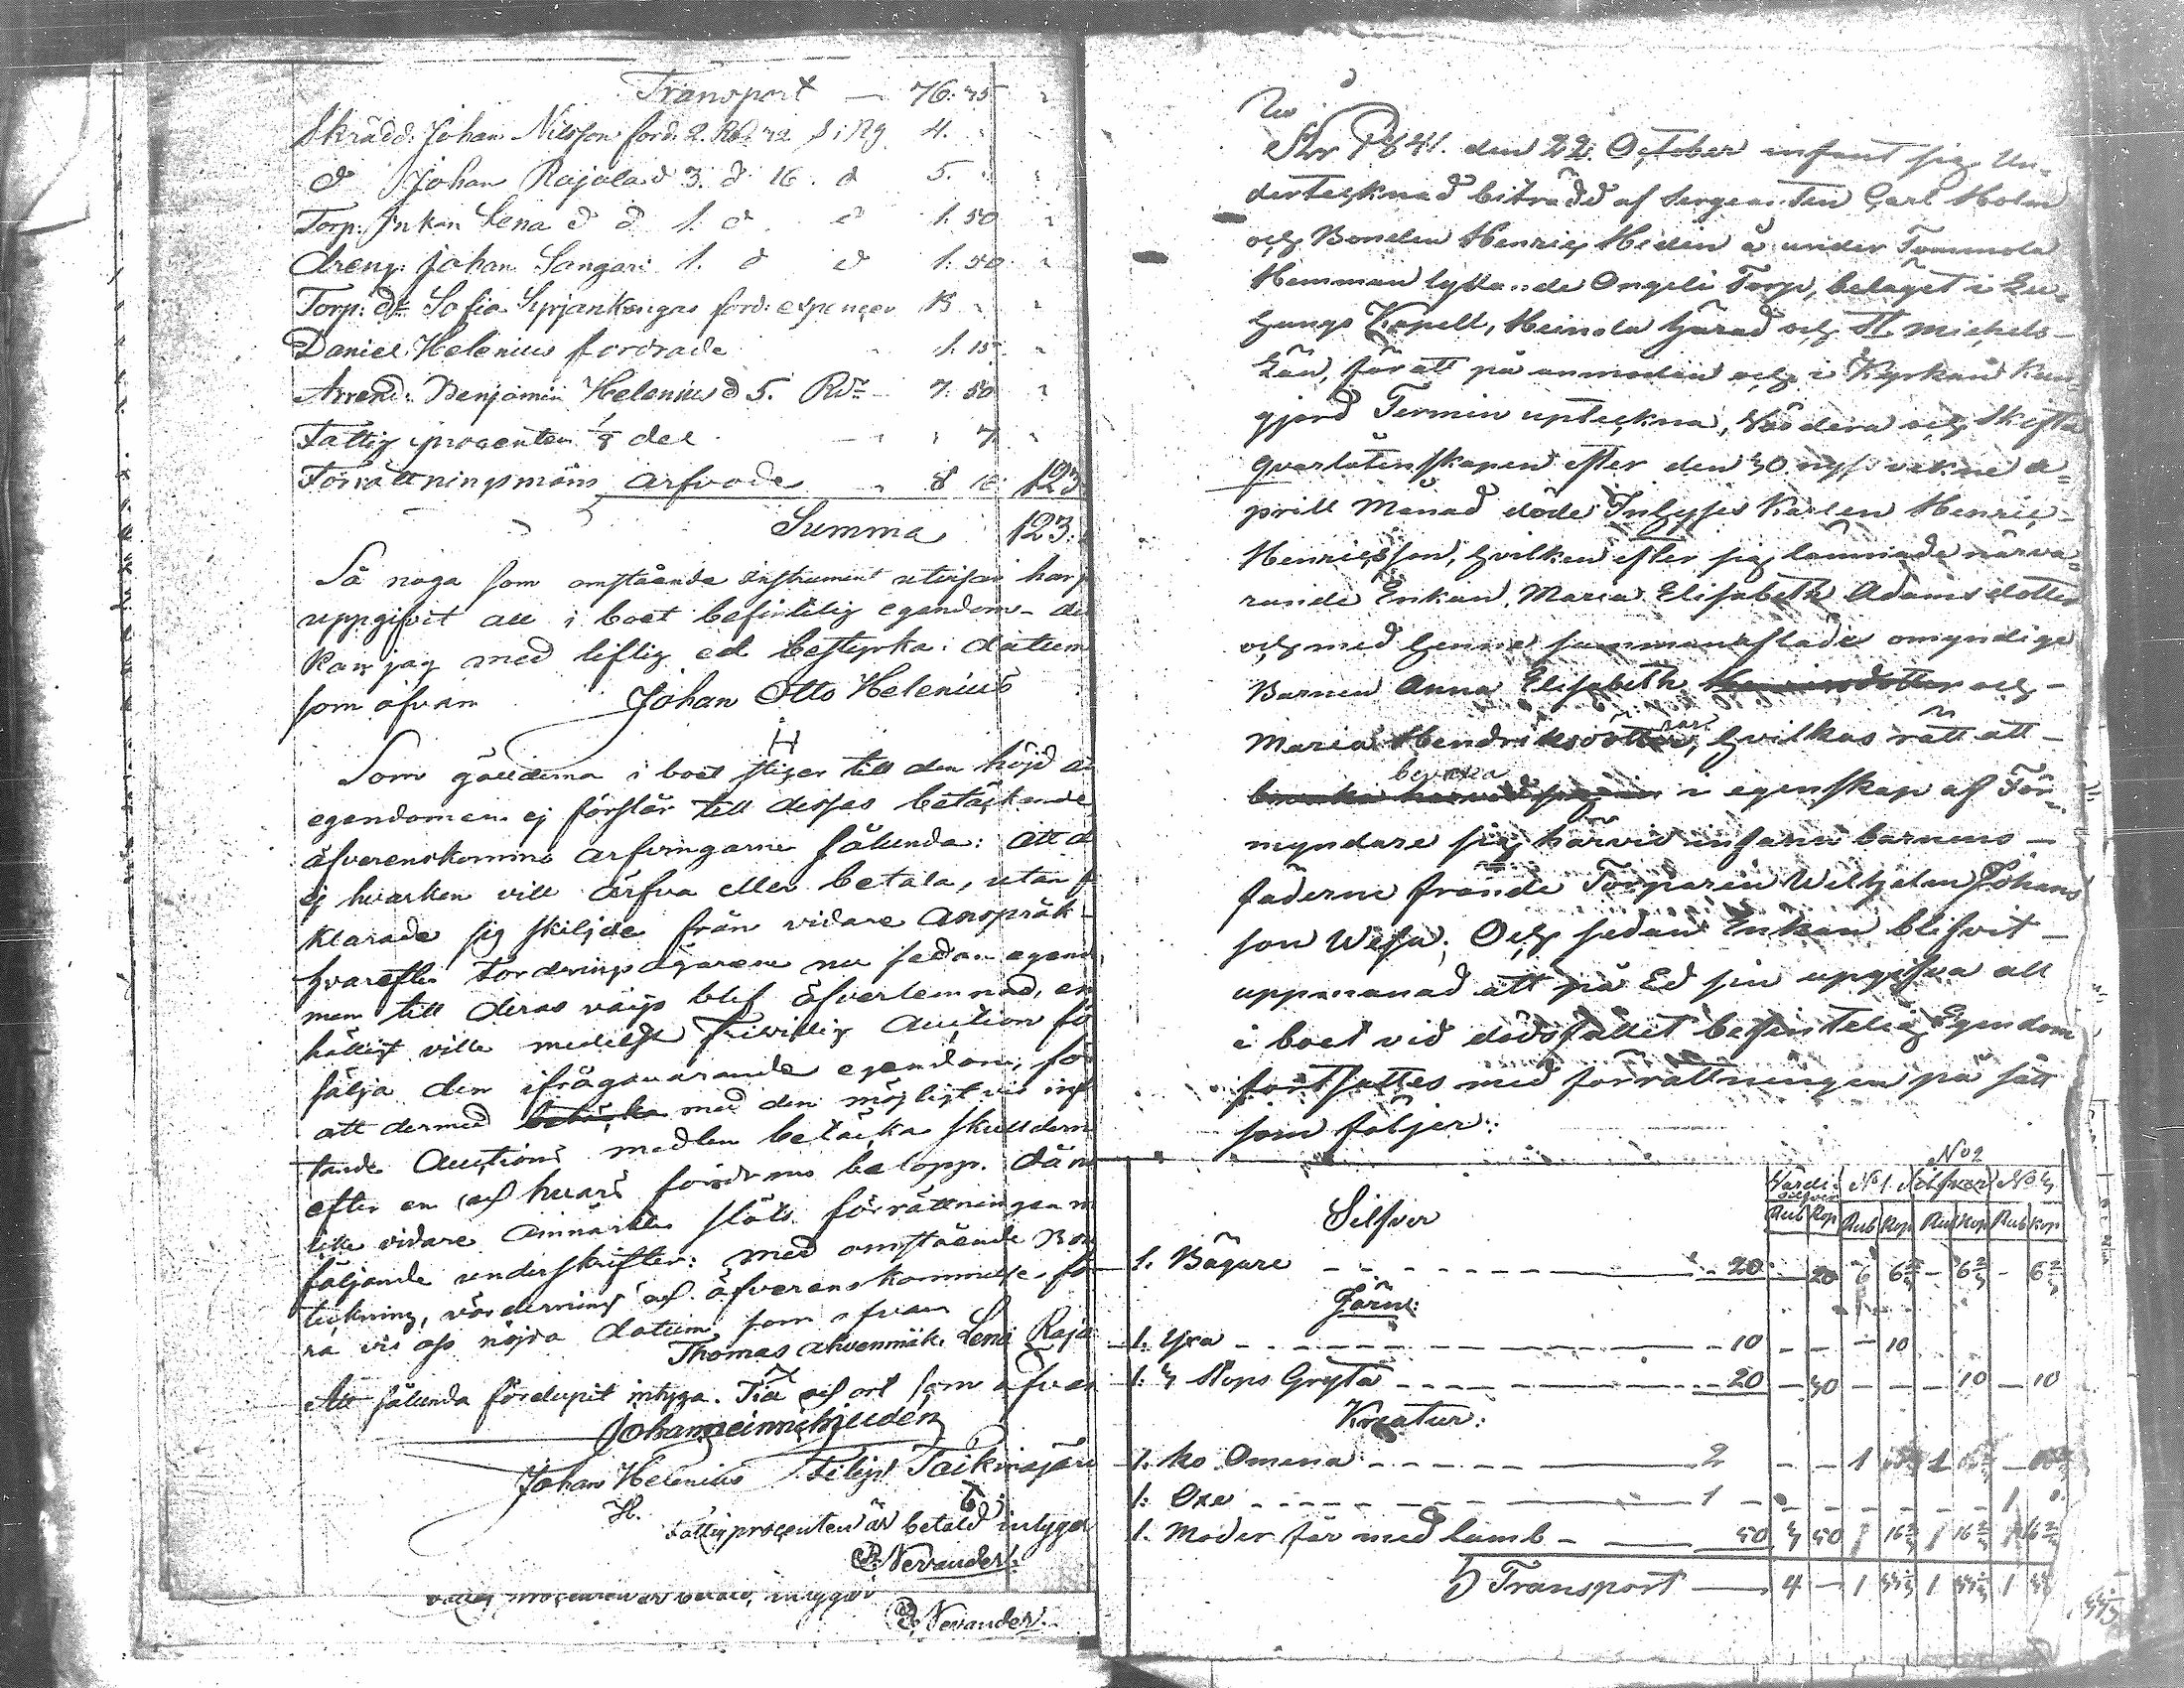 Transport — 76: 75
Skrädd: Johan Nilsson ford. 2. Rd 72 4.
d Johan Rajala d 3. d 16. d 5.
Torp: Enkan Lena d d 1. d d 1. 50
Dreng: Johan Sangari 1. d d 1: 50
Torp: dr Sofia Syrjänkangas ford: expenser 13
Daniel Helenius fordrade 1. 15
Arrend: Benjamin Helenius d 5. Rdr 7: 50
Fattig procenten 1/8 del 7
Förrättningsmäns arfvode 8 10 123
Summa 123:
Så noga som omstående instrument utvisar har
uppgifvit all i boet befintelig egendom
kan jag med liflig ed bestyrka: datum
som ofvan Johan Otto Helenius
H
Som gälderna i boet stiger till den höjd
egendomen ej förslår till desses betäckande
öfverenskommo arfvingarne sålunda: att
ej hvarken vill ärfva eller betala, utan
klarade sig skiljde från vidare anspråk
hvarefter fordringsägarene nu sedan egend
men till deras värjo blef öfverlemnad, en
hälligt ville medelst frivillig auction för
sälja den ifrågavarande egendom, för
att dermed betäcka med den möjligtvis infl
tande Auctions medlen betäcka skulderna
efter en och hvars fordrans belopp. Då
till vidare anmärkta slöts förrättningen
följande underskrifter: med omstående
teckning, värdering och öfverenskommelse
ra vi oss nöjda datum som ofvan
Thomas Ahvenmäki Lena Raja
Att sålunda förelupit intyga. Tid och ort som ofvan
Johan Helenius Filip Taikinajärvi
H.
Fattigprocenten är betald intygar
P. Nervander.
Fattig procenten är betald, intygar
P. Nervander.
År 1841. den 22. October infant sig Un-
dertecknad biträdd af Sergeanten Carl Holm
och Bonden Henric Hedin å under Tommola
Hemman lydande Ongeli Torp, beläget i Lu-
hangs Kapell, Heinola härad och St Michels
Län, för att på anmodan och i Kyrkan kun-
gjord Termin upteckna, värdera och skifta
qvarlåtenskapen efter den 30 nyss vekne A-
prill Månad döde Inhyses Karlen Henric
Henricsson, hvilken efter sig lämnade närva-
rande Enkan, Maria Elisabeth Adamsdotter
och med henne sammanaflade omyndige
Barnen Anna Elisabeth Henricsdotter och
Maria Hendriksdöttrar, hvilkas rätt att
bevaka
i egenskap af För-
myndare sig härvid infann barnens
faderne frände Torparen Wilhelm Johans
son Wesa; Och sedan Enkan blifvit
uppmanad att på Ed sin uppgifva all
i boet vid dödsfallet befintelig Egendom
fortsattes med förrättningen på sätt
som följer:
No 2
Värdi: silfver No 1. Silfver No 3
Silfver Rub Kop Rub Kop Rub Kop Rub Kop
1. Bägare 20 — 20 6 6 2/3 — 6 2/3 — 6 2/3
Järn:
1. Yxa 10 — — — 10
1. 3 Stops Gryta 20 — 30 — — — 10 — 10
Kreatur:
1. Ko Omena 2 — — 1
1. Oxe 1
1. Moder får med lamb 50 3 50 1 16 2/3 1 16 2/3 1 16 2/3
Transport — 4 — 1 33 1/3 1 33 1/3 1 33